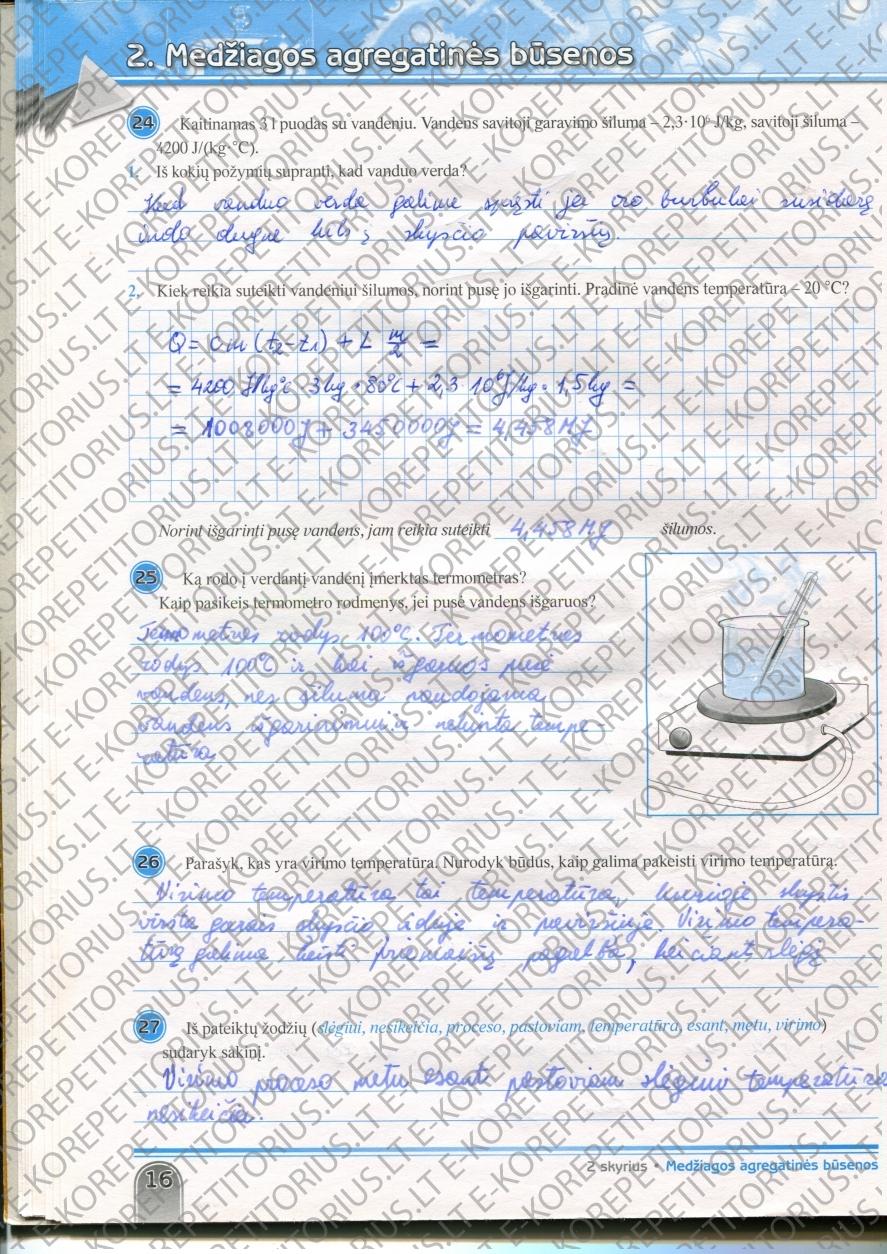 2. Medžiagos agregatinės būsenos
24 Kaitinamas 3 l puodas su vandeniu. Vandens savitoji garavimo šiluma – 2,3·10⁶ J/kg, savitoji šiluma –
4200 J/(kg·°C).
1. Iš kokių požymių supranti, kad vanduo verda?
Kad vanduo verda galime spręsti jei oro burbulai susidarę
indo dugne kils į skysčio paviršių.
2. Kiek reikia suteikti vandeniui šilumos, norint pusę jo išgarinti. Pradinė vandens temperatūra – 20 °C?
Q = cm (t₂-t₁) + L m/2 =
= 4200 J/kg°C · 3kg · 80°C + 2,3 · 10⁶ J/kg · 1,5kg =
= 1008000J + 3450000J = 4,458 MJ
Norint išgarinti pusę vandens, jam reikia suteikti 4,458 MJ šilumos.
25 Ką rodo į verdantį vandenį įmerktas termometras?
Kaip pasikeis termometro rodmenys, jei pusė vandens išgaruos?
Termometras rodys 100°C. Termometras
rodys 100°C ir kai išgaruos pusė
vandens, nes šiluma naudojama
vandens išgarinimui ir nekinta tempe-
ratūra
26 Parašyk, kas yra virimo temperatūra. Nurodyk būdus, kaip galima pakeisti virimo temperatūrą.
Virimo temperatūra tai temperatūra, kurioje skystis
virsta garais skysčio viduje ir paviršiuje. Virimo tempera-
tūrą galima keisti priemaišų pagalba, keičiant slėgį
27 Iš pateiktų žodžių (slėgiui, nesikeičia, proceso, pastoviam, temperatūra, esant, metu, virimo)
sudaryk sakinį.
Virimo proceso metu esant pastoviam slėgiui temperatūra
nesikeičia.
16
2 skyrius • Medžiagos agregatinės būsenos
E-KOREPETITORIUS.LT